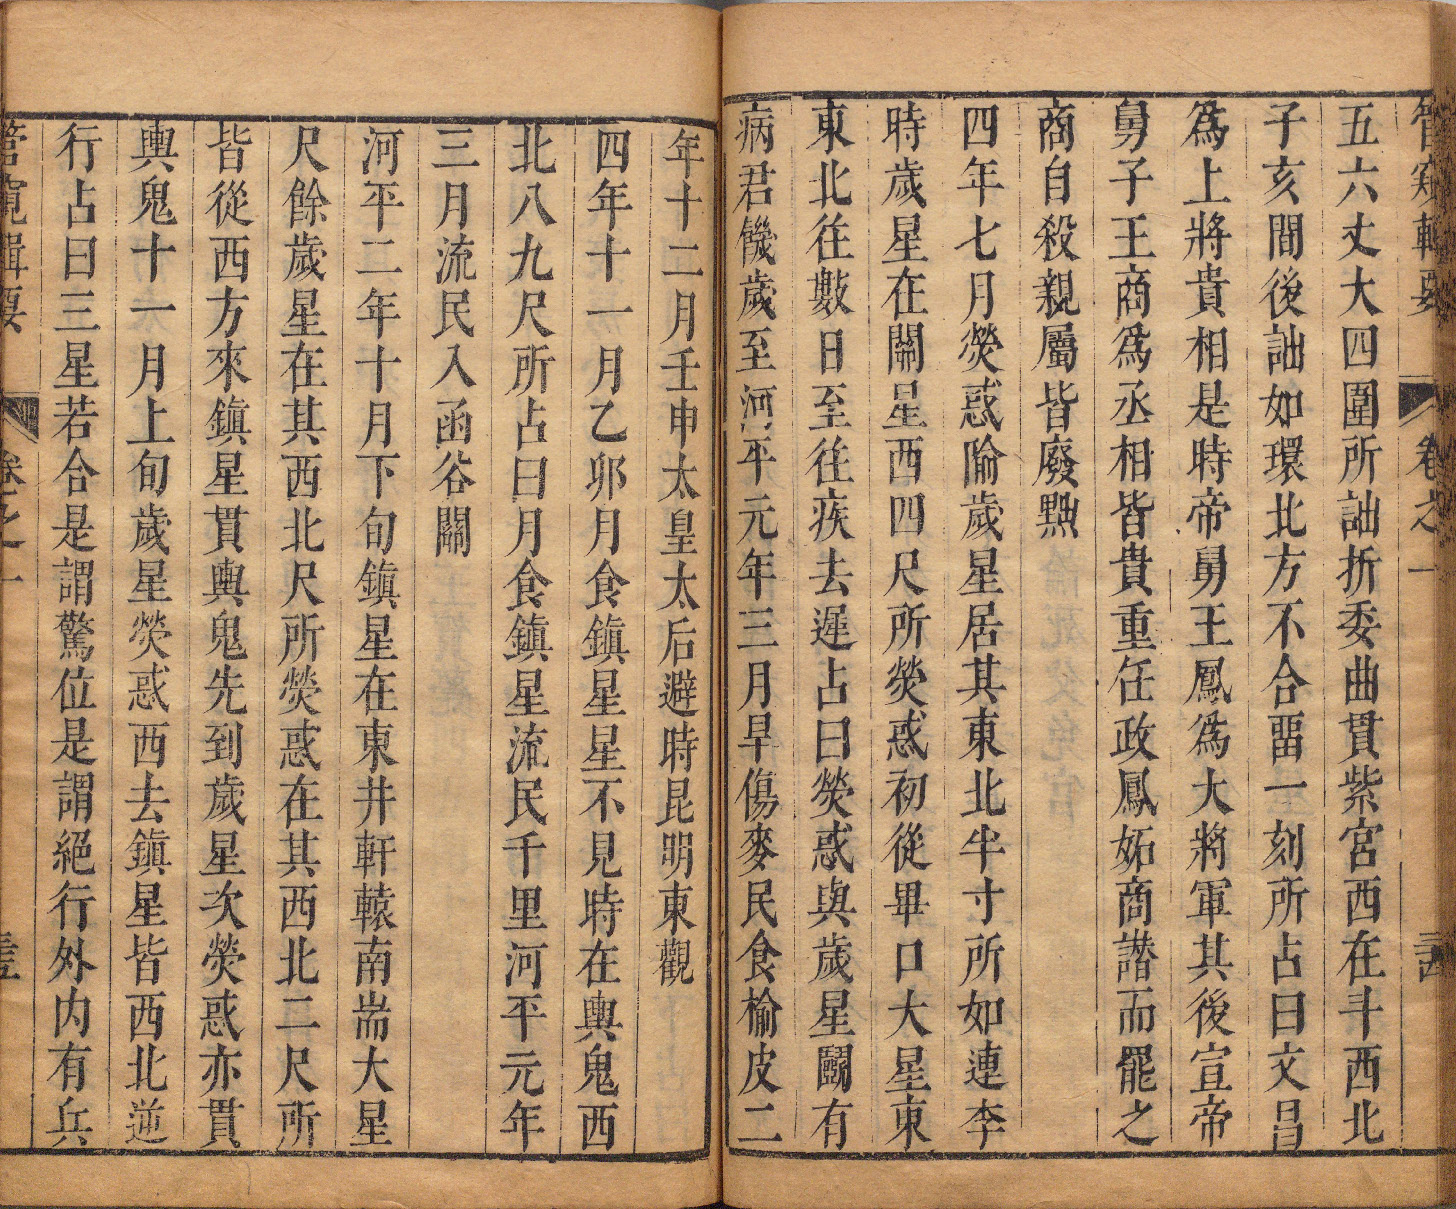 管窺輯要 卷之一
五六丈大四圍所詘折委曲貫紫宮西在斗西北
子亥間後詘如環北方不合畱一刻所占曰文昌
爲上將貴相是時帝舅王鳳爲大將軍其後宣帝
舅子王商爲丞相皆貴重任政鳳妬商譖而罷之
商自殺親屬皆廢黜
四年七月熒惑隃歲星居其東北半寸所如連李
時歲星在關星西四尺所熒惑初從畢口大星東
東北往數日至往疾去遲占曰熒惑與歲星鬭有
病君饑歲至河平元年三月旱傷麥民食榆皮二
年十二月壬申太皇太后避時昆明東觀
四年十一月乙卯月食鎮星星不見時在輿鬼西
北八九尺所占曰月食鎮星流民千里河平元年
三月流民入函谷關
河平二年十月下旬鎮星在東井軒轅南耑大星
尺餘歲星在其西北尺所熒惑在其西北二尺所
皆從西方來鎮星貫輿鬼先到歲星次熒惑亦貫
輿鬼十一月上旬歲星熒惑西去鎮星皆西北逆
行占曰三星若合是謂驚位是謂絕行外內有兵
管窺輯要 卷之一